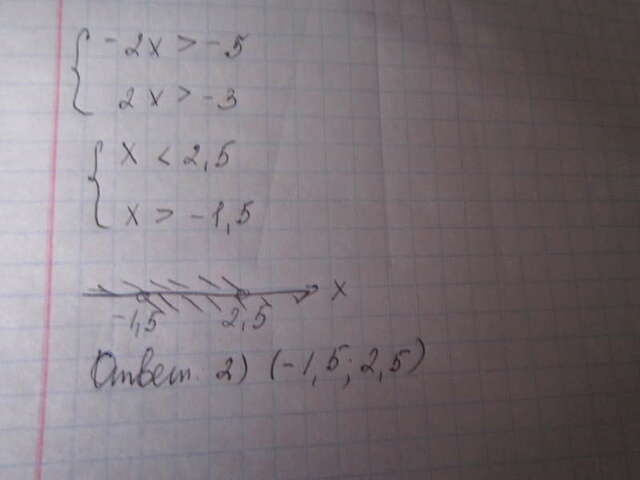 -2x > -5
2x > -3
x < 2,5
x > -1,5
x
-1,5 2,5
Ответ. 2) (-1,5; 2,5)